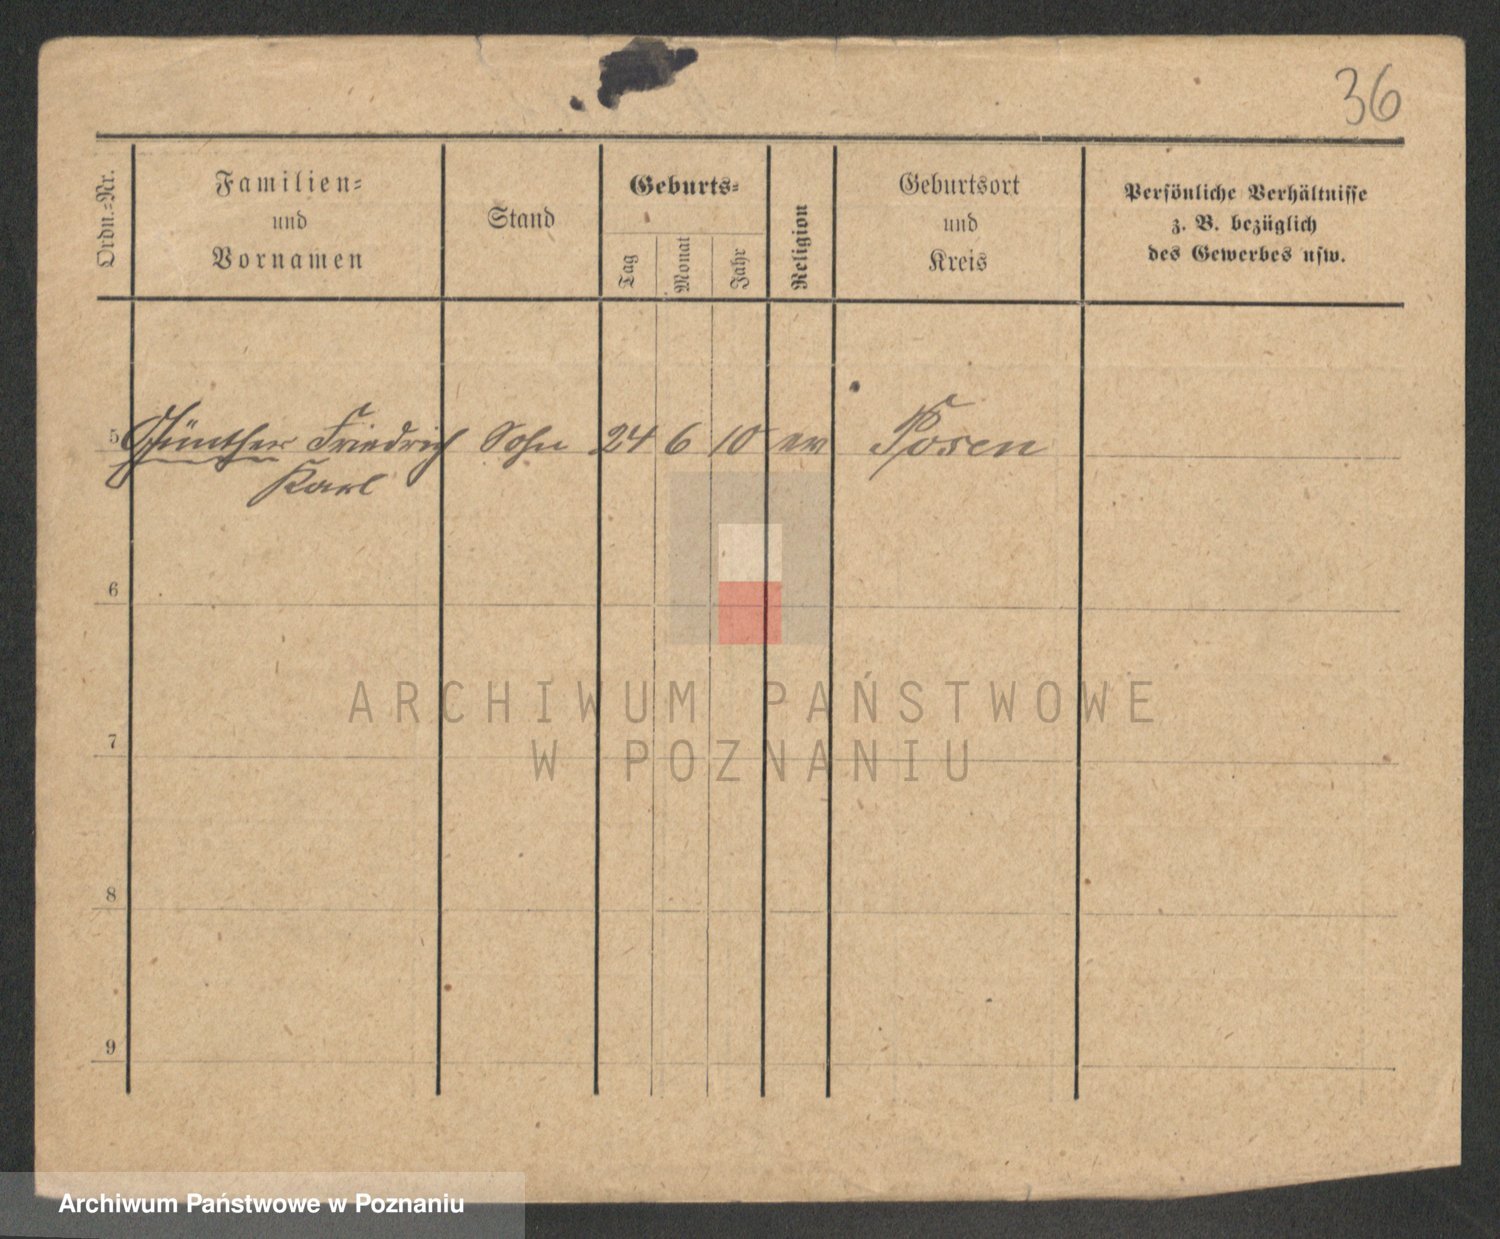 36
Ordn.-Nr.
Familien-
und
Vornamen
Stand
Geburts-
Tag
Monat
Jahr
Religion
Geburtsort
und
Kreis
Persönliche Verhältnisse
z. B. bezüglich
des Gewerbes usw.
5 Günther Friedrich Sohn 24 6 10 ev Posen
Karl
6
7
8
9
ARCHIWUM PAŃSTWOWE
W POZNANIU
Archiwum Państwowe w Poznaniu